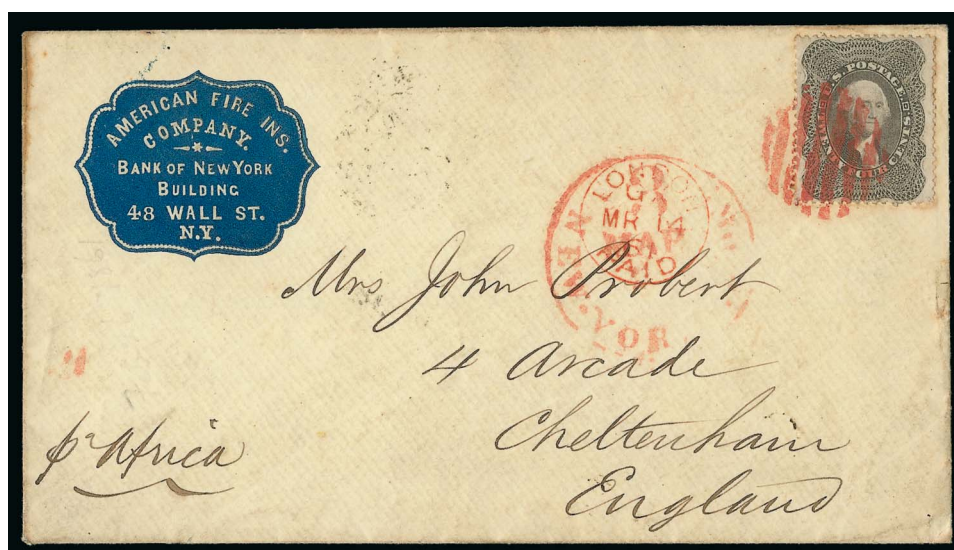 AMERICAN FIRE INS.
COMPANY.
BANK OF NEW YORK
BUILDING
48 WALL ST.
N.Y.
U.S. POSTAGE
FOUR CENTS
LONDON
MR 14
61
PAID
NEW YOR
Mrs John Probert
4 Arcade
Cheltenham
England
pr Africa